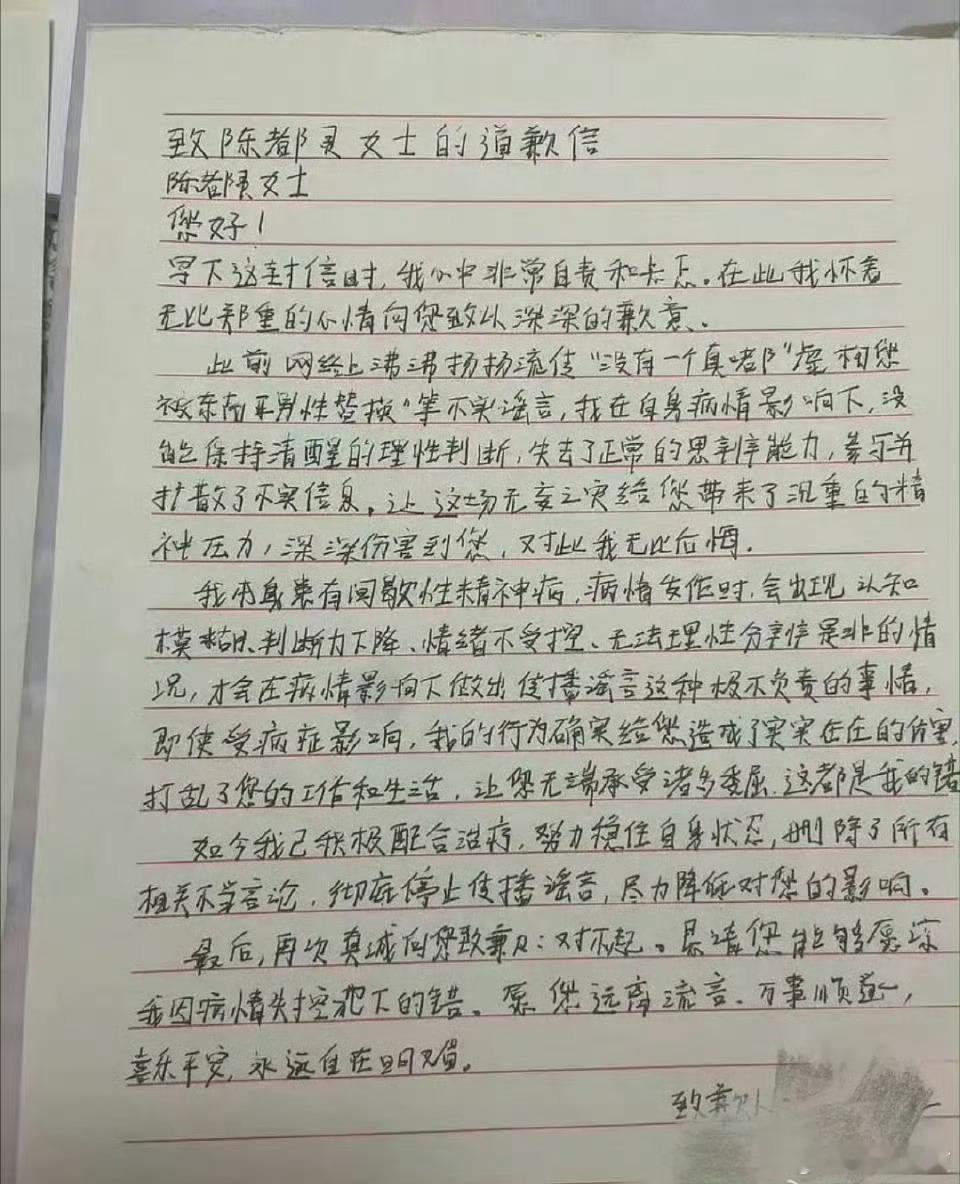 致陈都灵女士的道歉信
陈都灵女士
您好!
写下这封信时,我心中非常自责和忐忑。在此我怀着
无比郑重的心情向您致以深深的歉意。
此前网络上沸沸扬扬流传“没有一个真嘟”虚构您
被东南亚男性替换”等不实谣言,我在自身病情影响下,没
能保持清醒的理性判断,失去了正常的思辨能力,参与并
扩散了不实信息。让这场无妄之灾给您带来了沉重的精
神压力,深深伤害到您,对此我无比后悔.
我本身患有间歇性精神病,病情发作时,会出现认知
模糊、判断力下降、情绪不受控、无法理性分辨是非的情
况,才会在病情影响下做出传播谣言这种极不负责的事情,
即使受病症影响,我的行为确实给您造成了实实在在的伤害,
打乱了您的工作和生活,让您无端承受诸多委屈.这都是我的错
如今我已积极配合治疗,努力稳住自身状态,删除了所有
相关不当言论,彻底停止传播谣言,尽力降低对您的影响。
最后,再次真诚向您致歉:对不起。恳请您能够原谅
我因病情失控犯下的错。愿您远离流言、万事顺遂,
喜乐平安,永远自在明媚。
致歉人